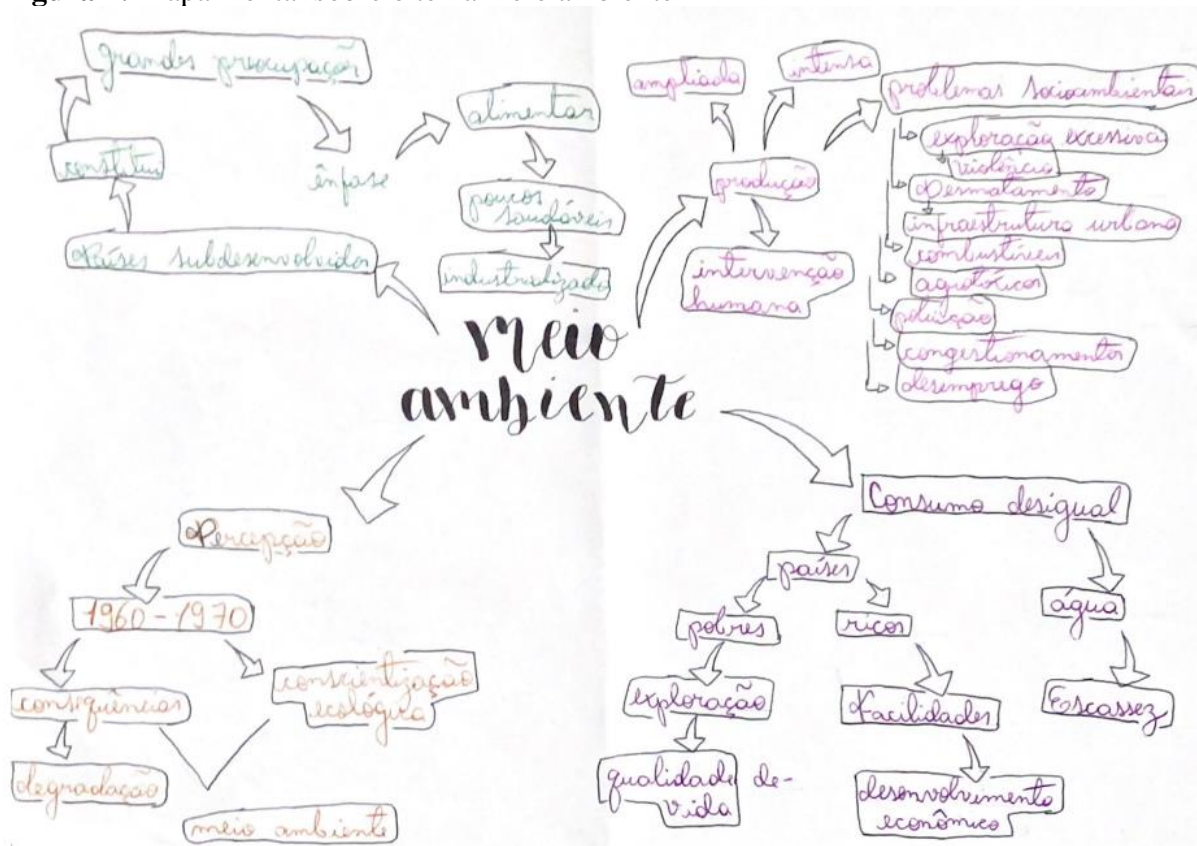 grandes preocupaçõs
constitui
ênfase
Países subdesenvolvidos
alimentar
poucos
saudáveis
industrializado
ampliada
intensa
produção
intervenção
humana
problemas socioambientais
exploração excessiva
violência
Desmatamento
infraestrutura urbana
combustíveis
agrotóxicos
poluição
congestionamentos
desemprego
meio
ambiente
Percepção
1960-1970
consequências
degradação
conscientização
ecológica
meio ambiente
Consumo desigual
países
pobres
exploração
qualidade de
vida
ricos
Facilidades
desenvolvimento
econômico
água
Escassez